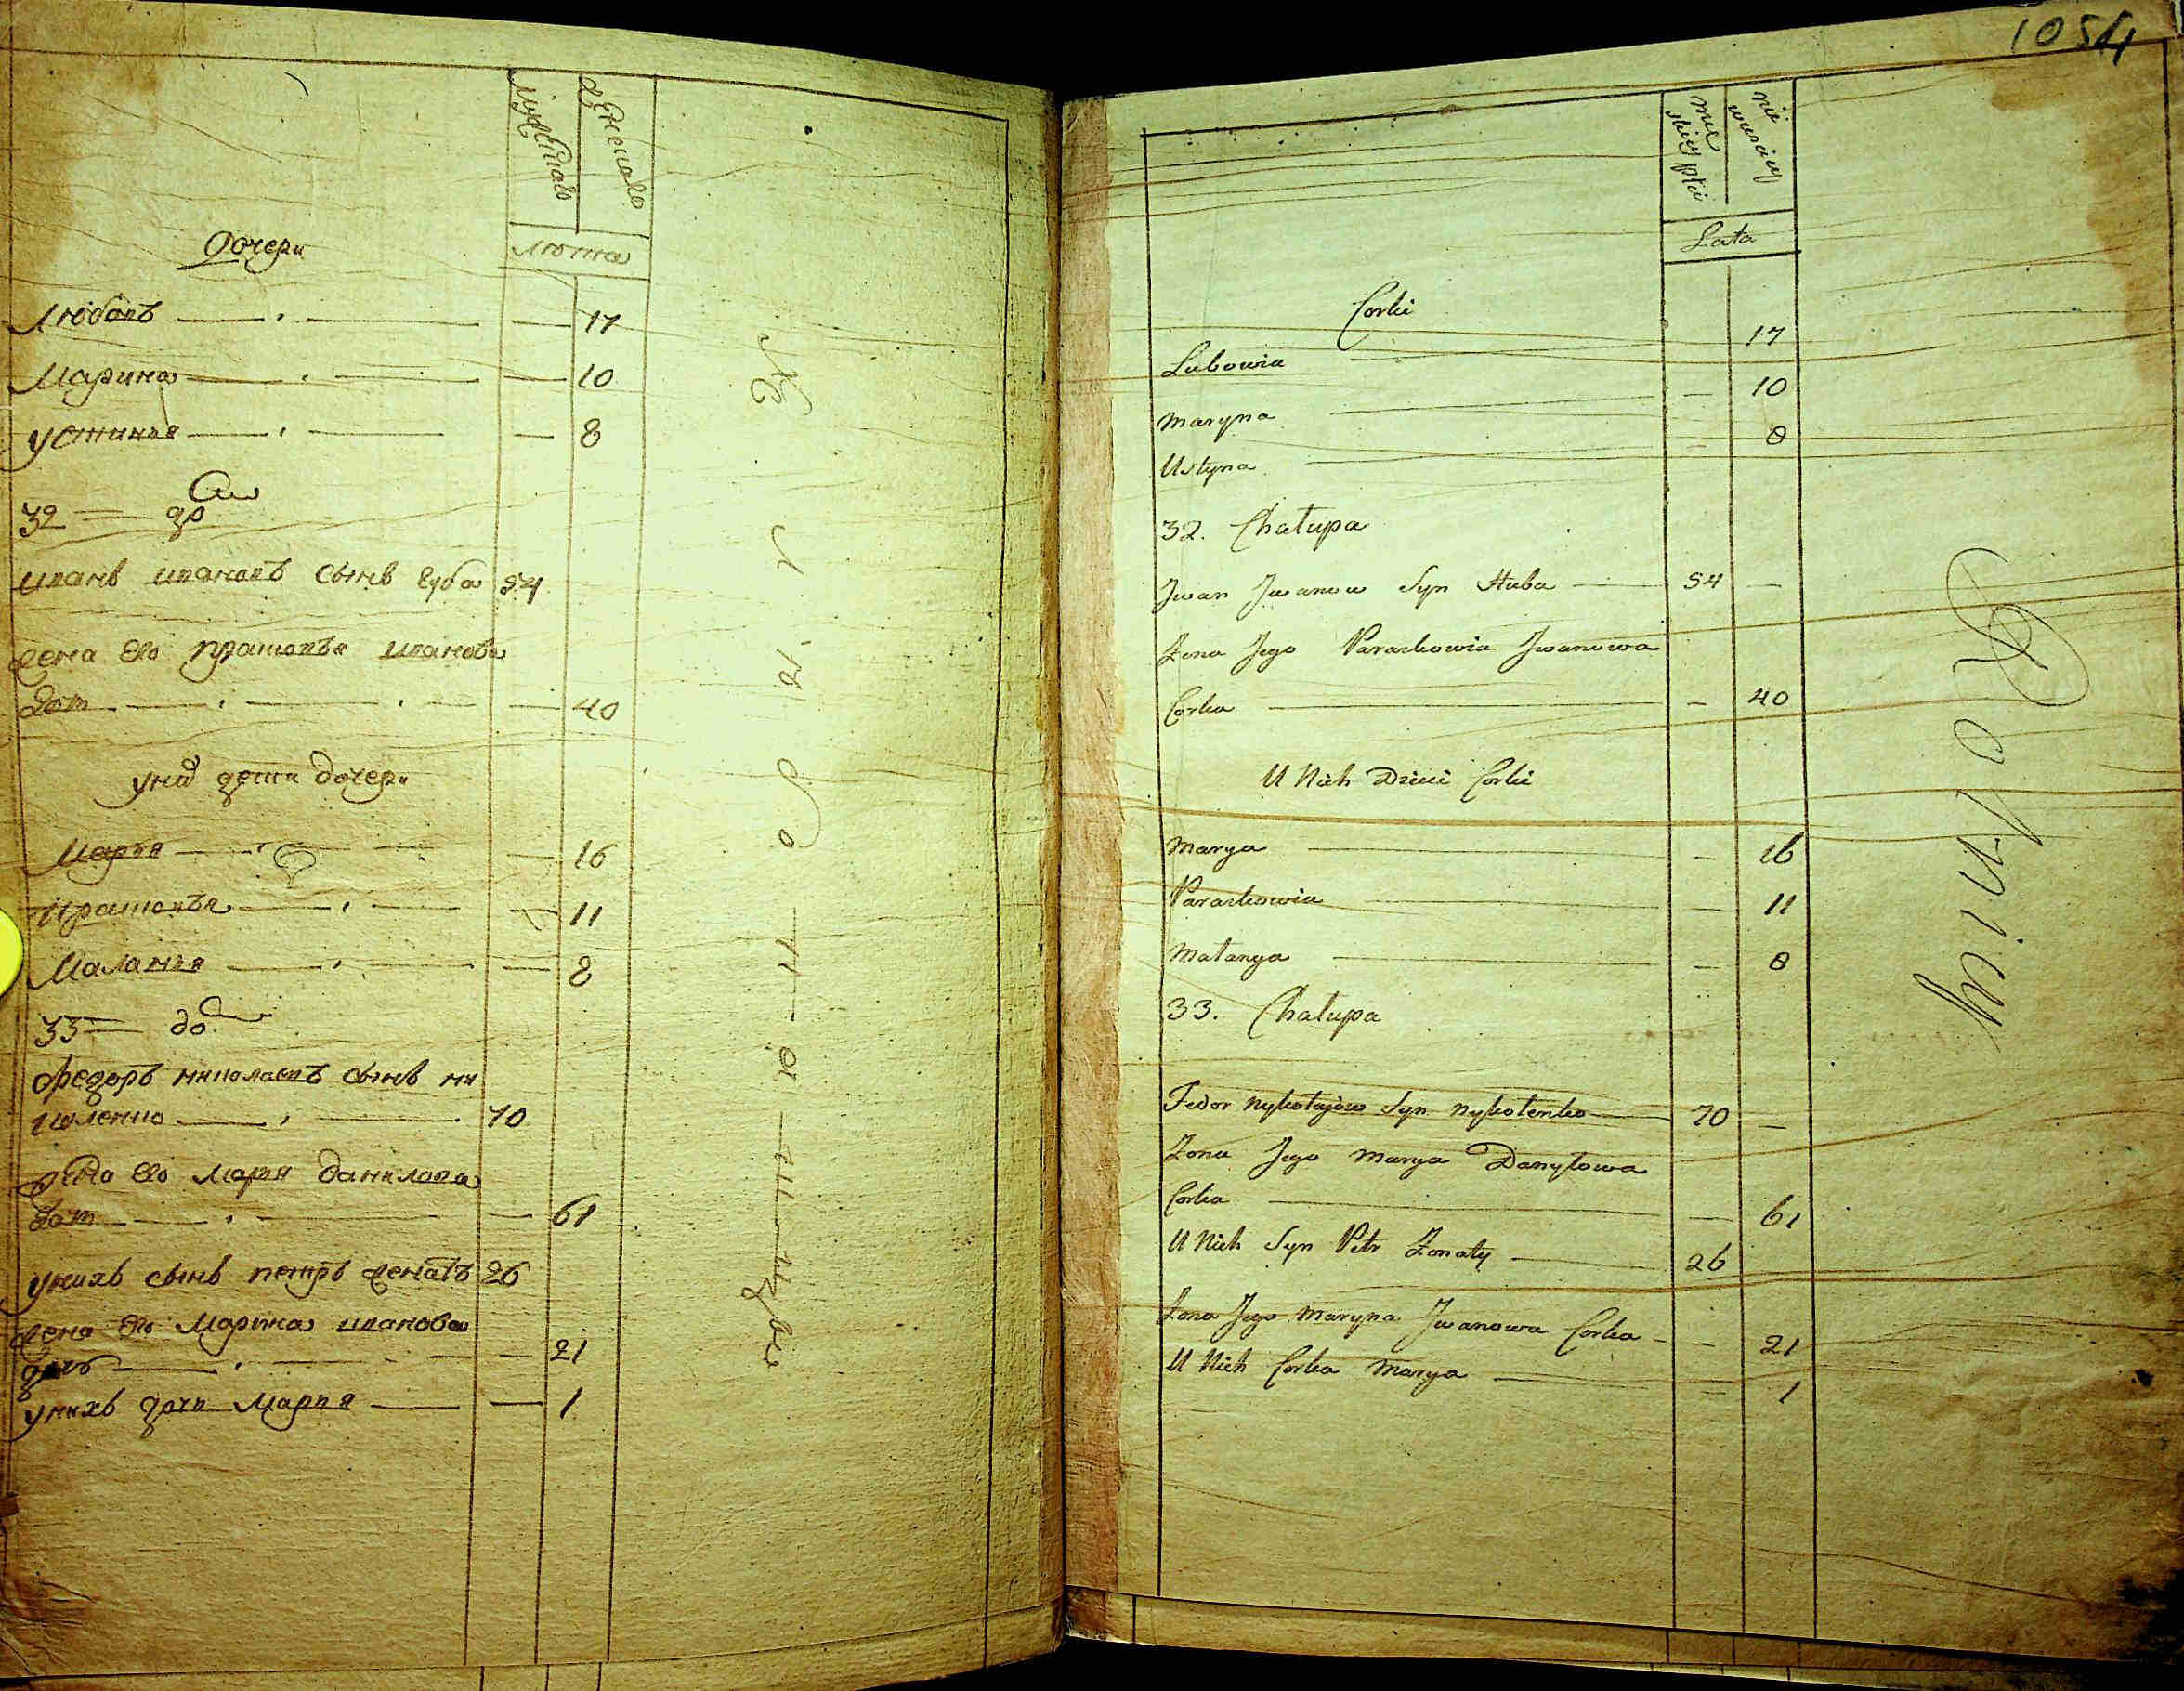 мужеска
женска
лета
Дочери
Любовъ — 17
Марина — 10
Устинья — 8
32 = до
Иванъ Ивановъ сынъ Губа 54
Жена его Прасковья Иванова
доч — 40
У них дети дочери
Марья — 16
Прасковья — 11
Маланья — 8
33 = до
Федоръ Николаевъ сынъ Ни
коленко — 70
Жена его Марья Данилова
доч — 61
У нихъ сынъ Петръ женатъ 26
Жена его Марина Иванова
дочь — 21
У нихъ дочь Марья — 1
1054
męskiey płci
niewieściey
Lata
Corki
Lubowia — 17
Maryna — 10
Ustyna — 8
32. Chałupa
Jwan Jwanow Syn Huba — 54 —
Zona Jego Paraskowia Jwanowa
Corka — 40
U Nich Dzieci Corki
Marya — 16
Paraskowia — 11
Małanya — 8
33. Chałupa
Fedor Nykołajow Syn Nykolenko — 70 —
Zona Jego Marya Danyłowa
Corka — 61
U Nich Syn Petr Zonaty — 26
Zona Jego Maryna Jwanowa Corka — 21
U Nich Corka Marya — 1